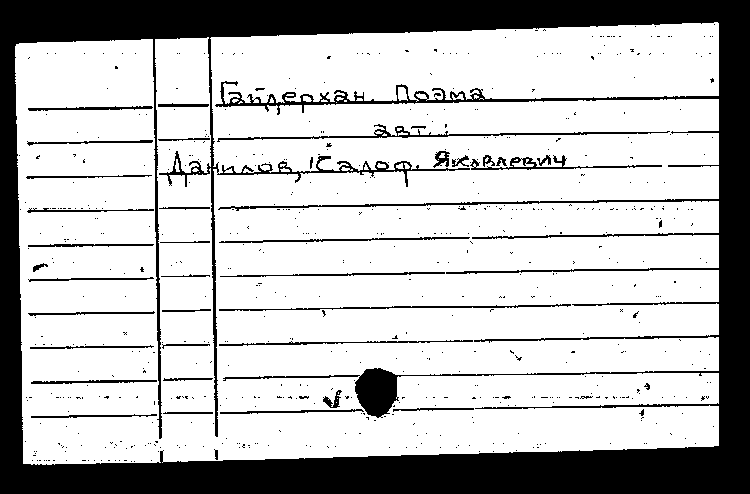 Гайдерхан. Поэма
авт.:
Данилов, Садоф. Яковлевич